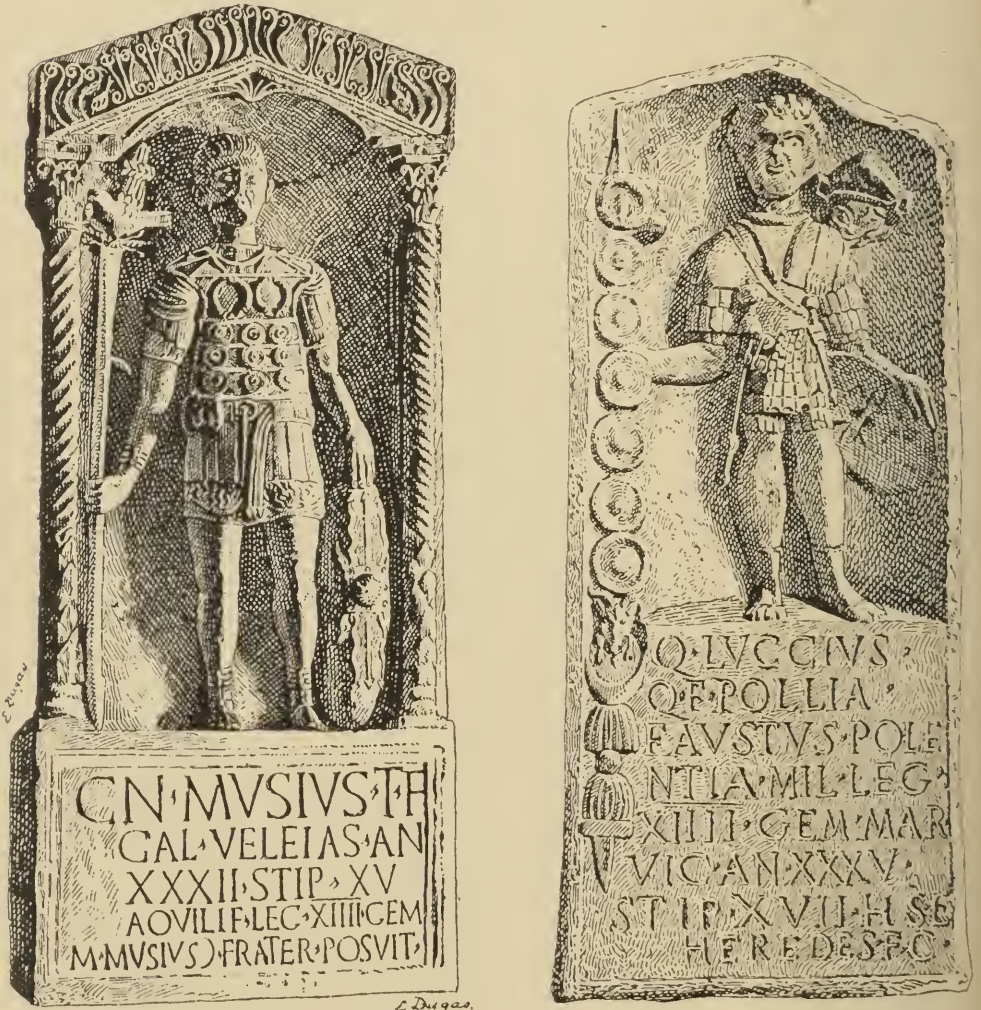 CN·MVSIVS·T·F
GAL·VELEIAS·AN
XXXII·STIP·XV
AQVILIF·LEG·XIIII·GEM
M·MVSIVS·Ɔ·FRATER·POSVIT·
E Dugas
E Dugas.
Q·LVCCIVS·
Q·F·POLLIA·
FAVSTVS·POLE
NTIA·MIL·LEG·
XIIII·GEM·MAR
VIC·AN·XXXV·
STIP·XVII·H·S·E
HEREDES·F·C·